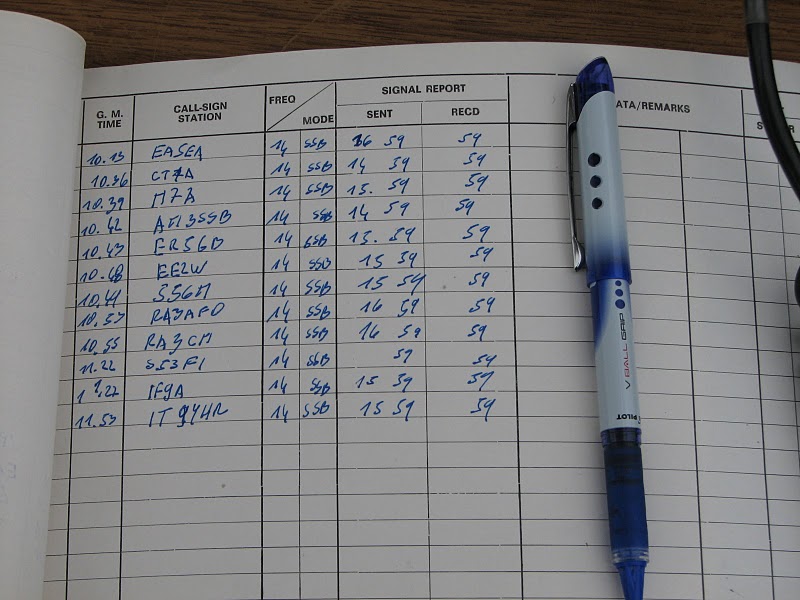 G. M. TIME CALL-SIGN STATION FREQ MODE SIGNAL REPORT SENT RECD ATA/REMARKS
10.13 EA5EA 14 SSB 16 59 59
10.36 CT7A 14 SSB 14 59 59
10.39 M7A 14 SSB 15. 59 59
10.42 SSB 14 59 59
10.43 ER56B 14 SSB 13. 59 59
10.48 EE2W 14 SSB 15 59 59
S56M 14 SSB 15 59 59
10.53 RA3AFO 14 SSB 16 59 59
10.55 RA3CM 14 SSB 16 59 59
11.22 S53F1 14 SSB 59 59
IF9A 14 SSB 15 59 59
11.53 14 SSB 15 59 59
V BALL GRIP
PILOT